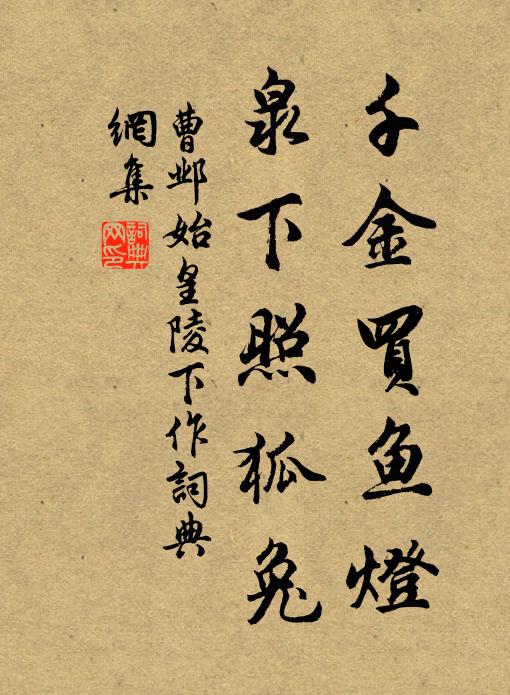 千金買鱼燈
泉下照狐兔
曹邺始皇陵下作詞典
網集
詞典
网印